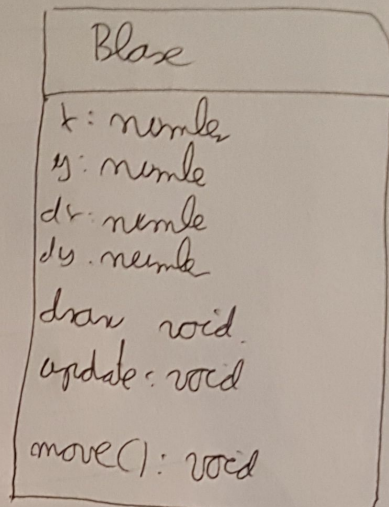 Blase
x: number
y: number
dx: number
dy: number
draw void.
update: void
move(): void